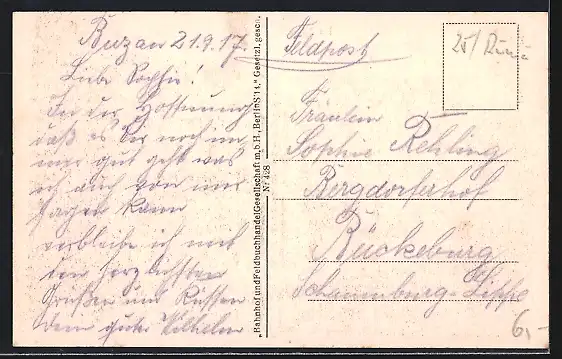 Buzau 21.9.17.
Liebe Sophie!
In der Hoffnung
daß es Dir noch im-
mer gut geht was
ich auch von mir
sagen kann
verbleibe ich mit
den herzlichsten
Grüßen und Küssen
dein guter Wilhelm
"Bahnhof und Feldbuchhandel Gesellschaft m.b.H., Berlin S 14." Gesetzl. gesch.
Nr. 428
Feldpost
Fräulein
Sophie Rehling
Bergdorferhof
Bückeburg
Schaumburg-Lippe
25/
6,-